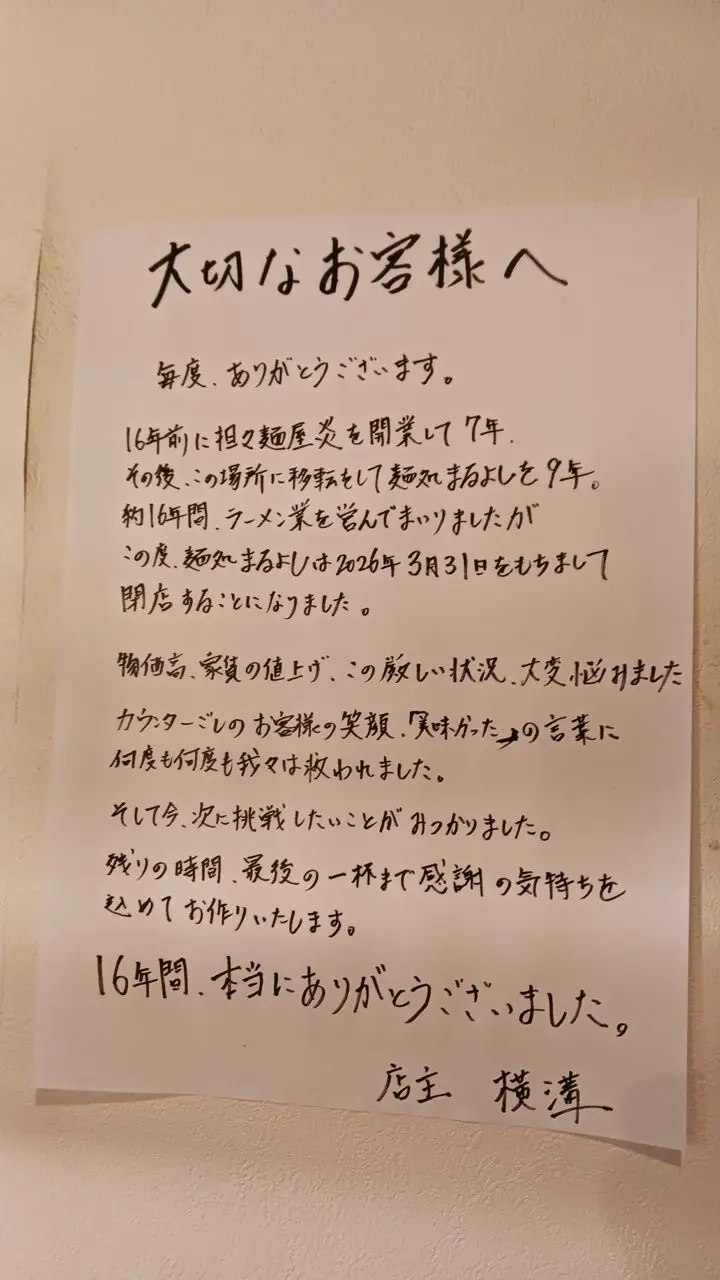 大切なお客様へ
毎度、ありがとうございます。
16年前に担々麺屋炎を開業して7年、
その後、この場所に移転をして麺処まるよしを9年。
約16年間、ラーメン業を営んでまいりましたが
この度、麺処まるよしは2026年3月31日をもちまして
閉店することになりました。
物価高、家賃の値上げ、この厳しい状況、大変悩みました
カウンターごしのお客様の笑顔、「美味かった」の言葉に
何度も何度も我々は救われました。
そして今、次に挑戦したいことがみつかりました。
残りの時間、最後の一杯まで感謝の気持ちを
込めてお作りいたします。
16年間、本当にありがとうございました。
店主 横溝